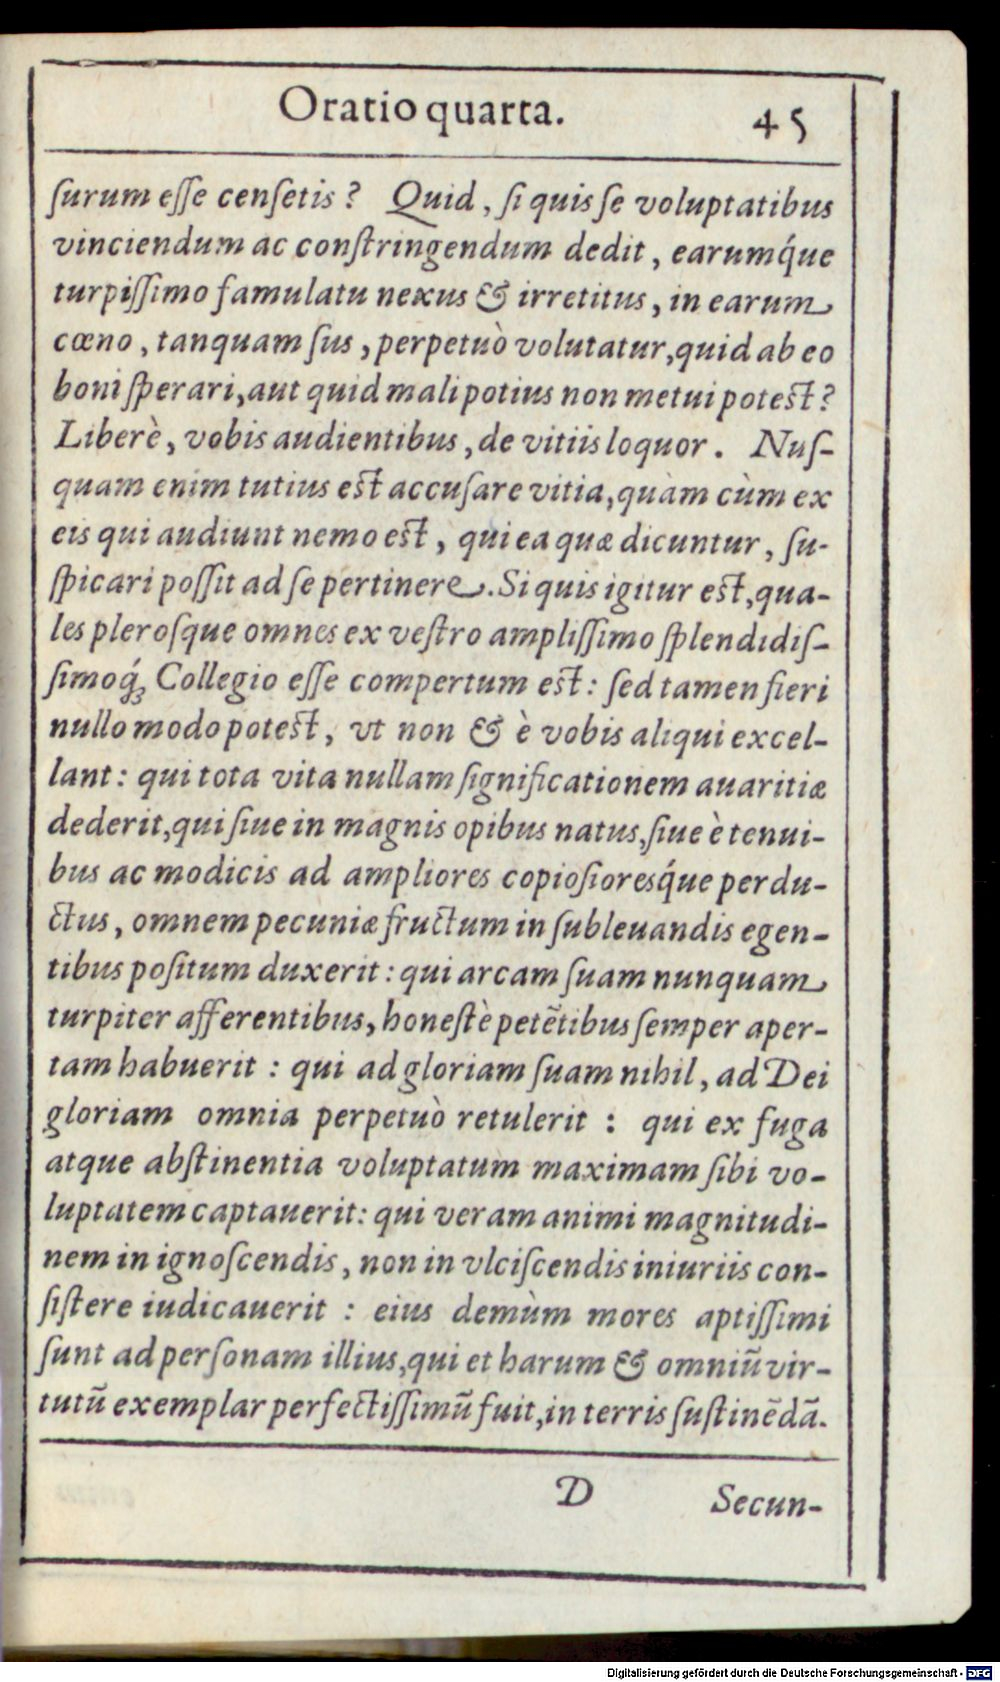 Oratio quarta. 45
ſurum eſſe cenſetis? Quid, ſi quis ſe voluptatibus
vinciendum ac conſtringendum dedit, earumq́ue
turpiſſimo famulatu nexus & irretitus, in earum
cœno, tanquam ſus, perpetuò volutatur, quid ab eo
boni ſperari, aut quid mali potius non metui poteſt?
Liberè, vobis audientibus, de vitiis loquor. Nuſ-
quam enim tutius eſt accuſare vitia, quàm cùm ex
eis qui audiunt nemo eſt, qui ea quæ dicuntur, ſu-
ſpicari poſſit ad ſe pertinere. Si quis igitur eſt, qua-
les pleroſque omnes ex veſtro ampliſſimo ſplendidiſ-
ſimoq́ꝫ Collegio eſſe compertum eſt: ſed tamen fieri
nullo modo poteſt, vt non & è vobis aliqui excel-
lant: qui tota vita nullam ſignificationem auaritiæ
dederit, qui ſiue in magnis opibus natus, ſiue è tenui-
bus ac modicis ad ampliores copioſioresq́ue perdu-
ctus, omnem pecuniæ fructum in ſubleuandis egen-
tibus poſitum duxerit: qui arcam ſuam nunquam
turpiter afferentibus, honeſtè petẽtibus ſemper aper-
tam habuerit: qui ad gloriam ſuam nihil, ad Dei
gloriam omnia perpetuò retulerit: qui ex fuga
atque abſtinentia voluptatum maximam ſibi vo-
luptatem captauerit: qui veram animi magnitudi-
nem in ignoſcendis, non in vlciſcendis iniuriis con-
ſiſtere iudicauerit: eius demùm mores aptiſſimi
ſunt ad perſonam illius, qui et harum & omniũ vir-
tutũ exemplar perfectiſſimũ fuit, in terris ſuſtinẽdã.
D Secun-
Digitalisierung gefördert durch die Deutsche Forschungsgemeinschaft - DFG